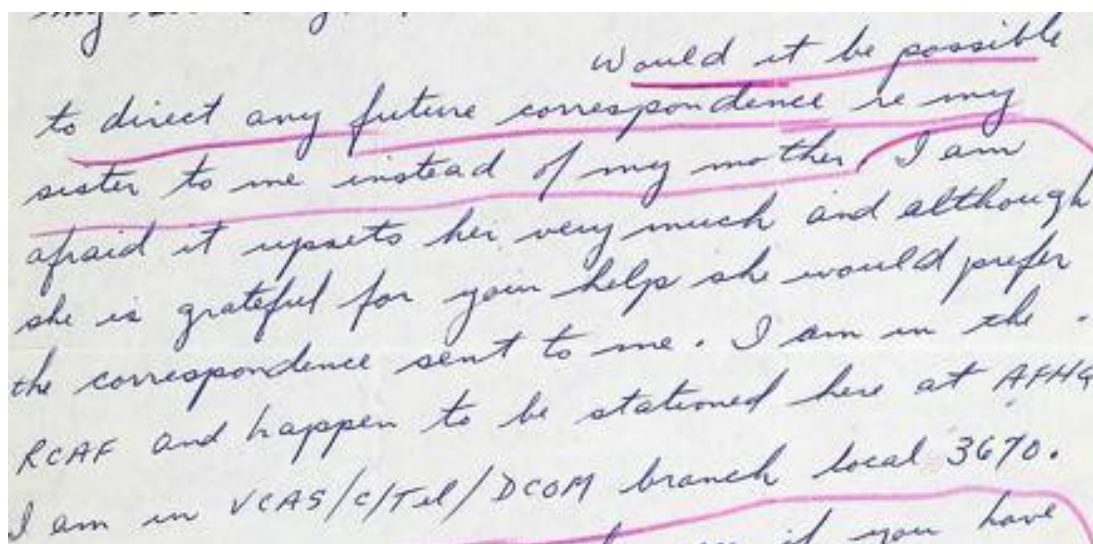 my
Would it be possible
to direct any future correspondence re my
sister to me instead of my mother. I am
afraid it upsets her very much and although
she is grateful for your help she would prefer
the correspondence sent to me. I am in the
RCAF and happen to be stationed here at AFHQ
I am in VCAS/C/Tel/DCOM branch local 3670.
if you have